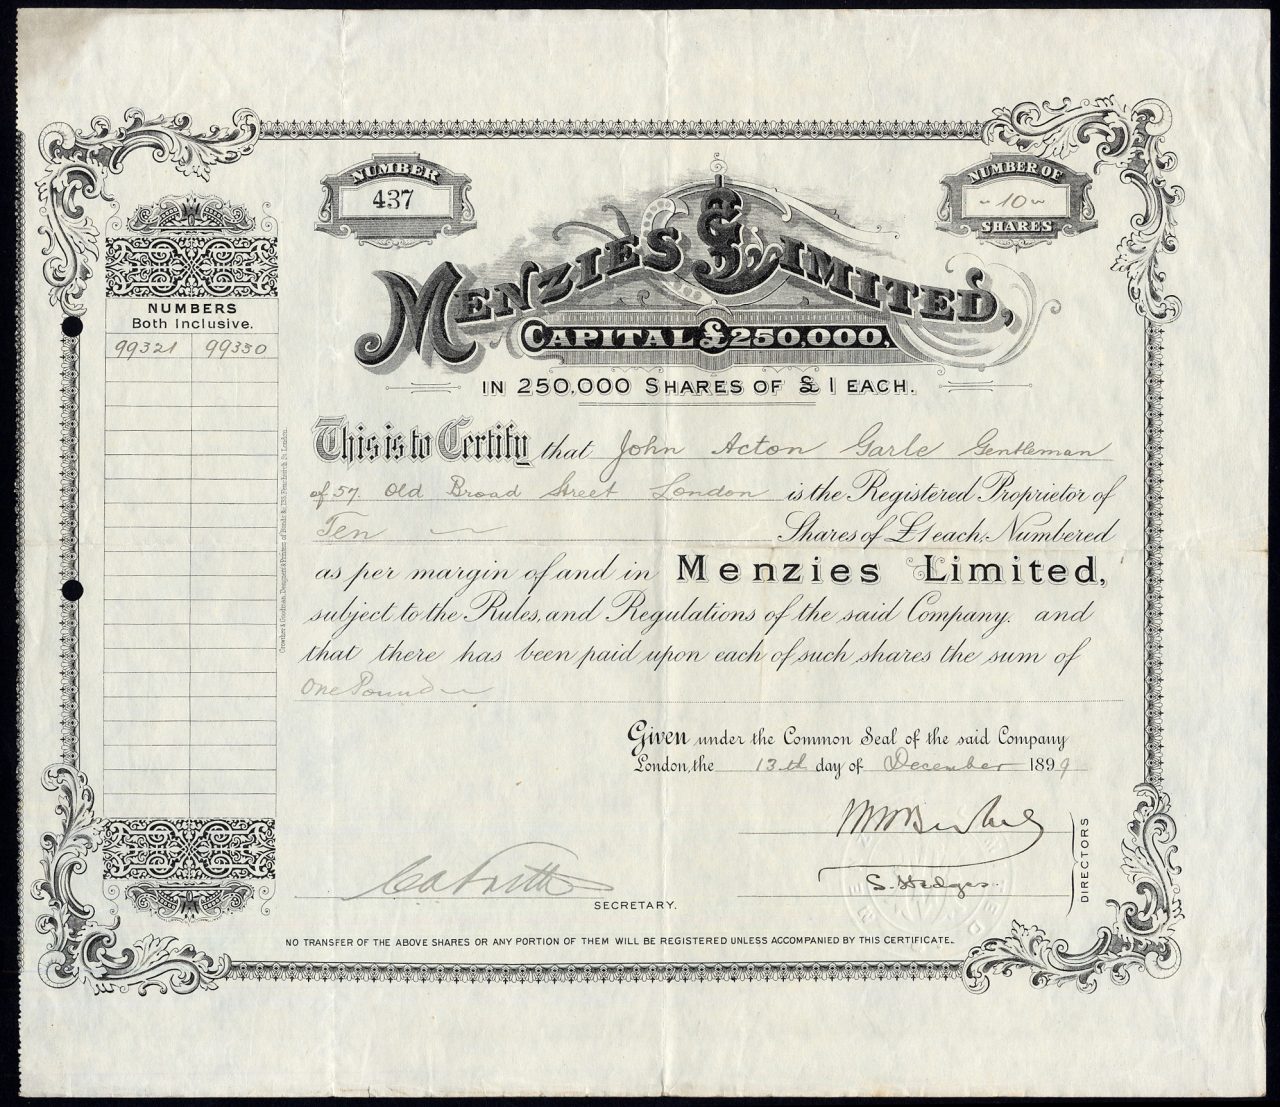 NUMBER
437
NUMBER OF
10
SHARES
MENZIES LIMITED,
CAPITAL £250,000,
IN 250,000 SHARES OF £1 EACH.
NUMBERS
Both Inclusive.
99321 99330
This is to Certify that John Acton Garle Gentleman
of 57. Old Broad Street London is the Registered Proprietor of
Ten Shares of £1 each, Numbered
as per margin of and in Menzies Limited,
subject to the Rules, and Regulations of the said Company. and
that there has been paid upon each of such shares the sum of
One Pound
Given under the Common Seal of the said Company
London, the 13th day of December 1899
DIRECTORS
S. Hedges
SECRETARY.
NO TRANSFER OF THE ABOVE SHARES OR ANY PORTION OF THEM WILL BE REGISTERED UNLESS ACCOMPANIED BY THIS CERTIFICATE.
Crowther & Goodman, Designers & Printers of Bonds &c, 135, Fenchurch St. London.